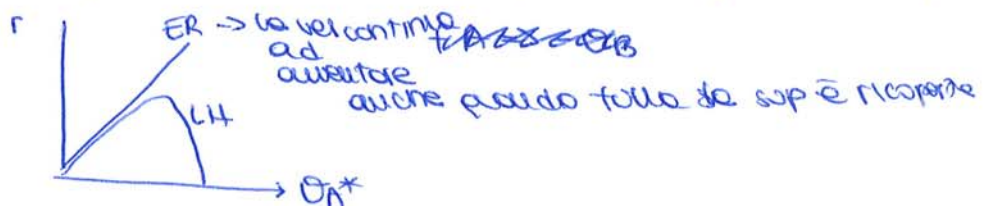 r
ER → la vel continua
ad
aumentare
anche quando tutta la sup è ricoperta
LH
θA*